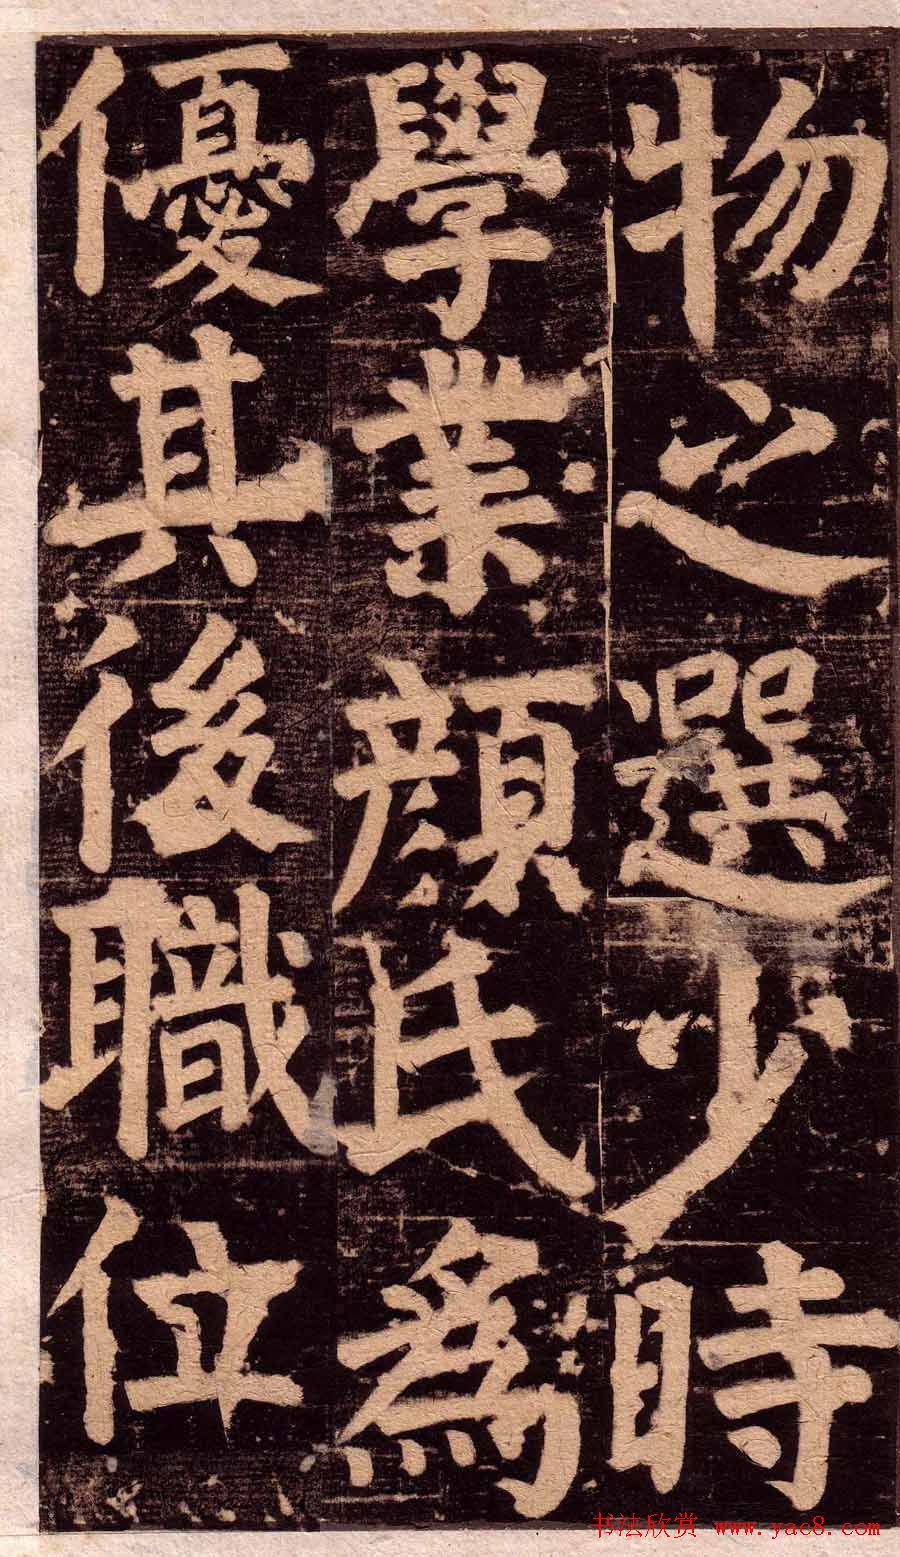 物之選少時
學業顏氏為
優其後職位
书法欣赏 www.yac8.com